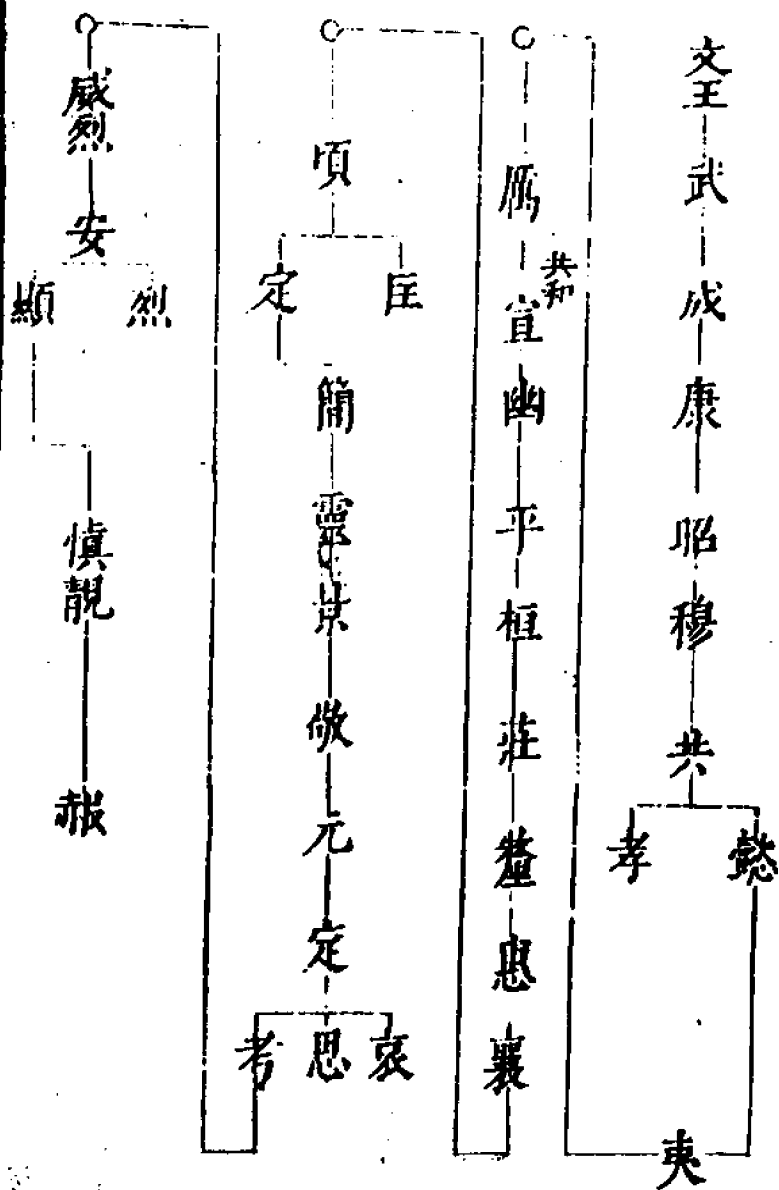 文王
武
成
康
昭
穆
共
懿
孝
夷
厲
共和
宣
幽
平
桓
莊
釐
惠
襄
頃
匡
定
簡
靈
景
敬
元
定
哀
思
考
威烈
安
烈
顯
慎靚
赧